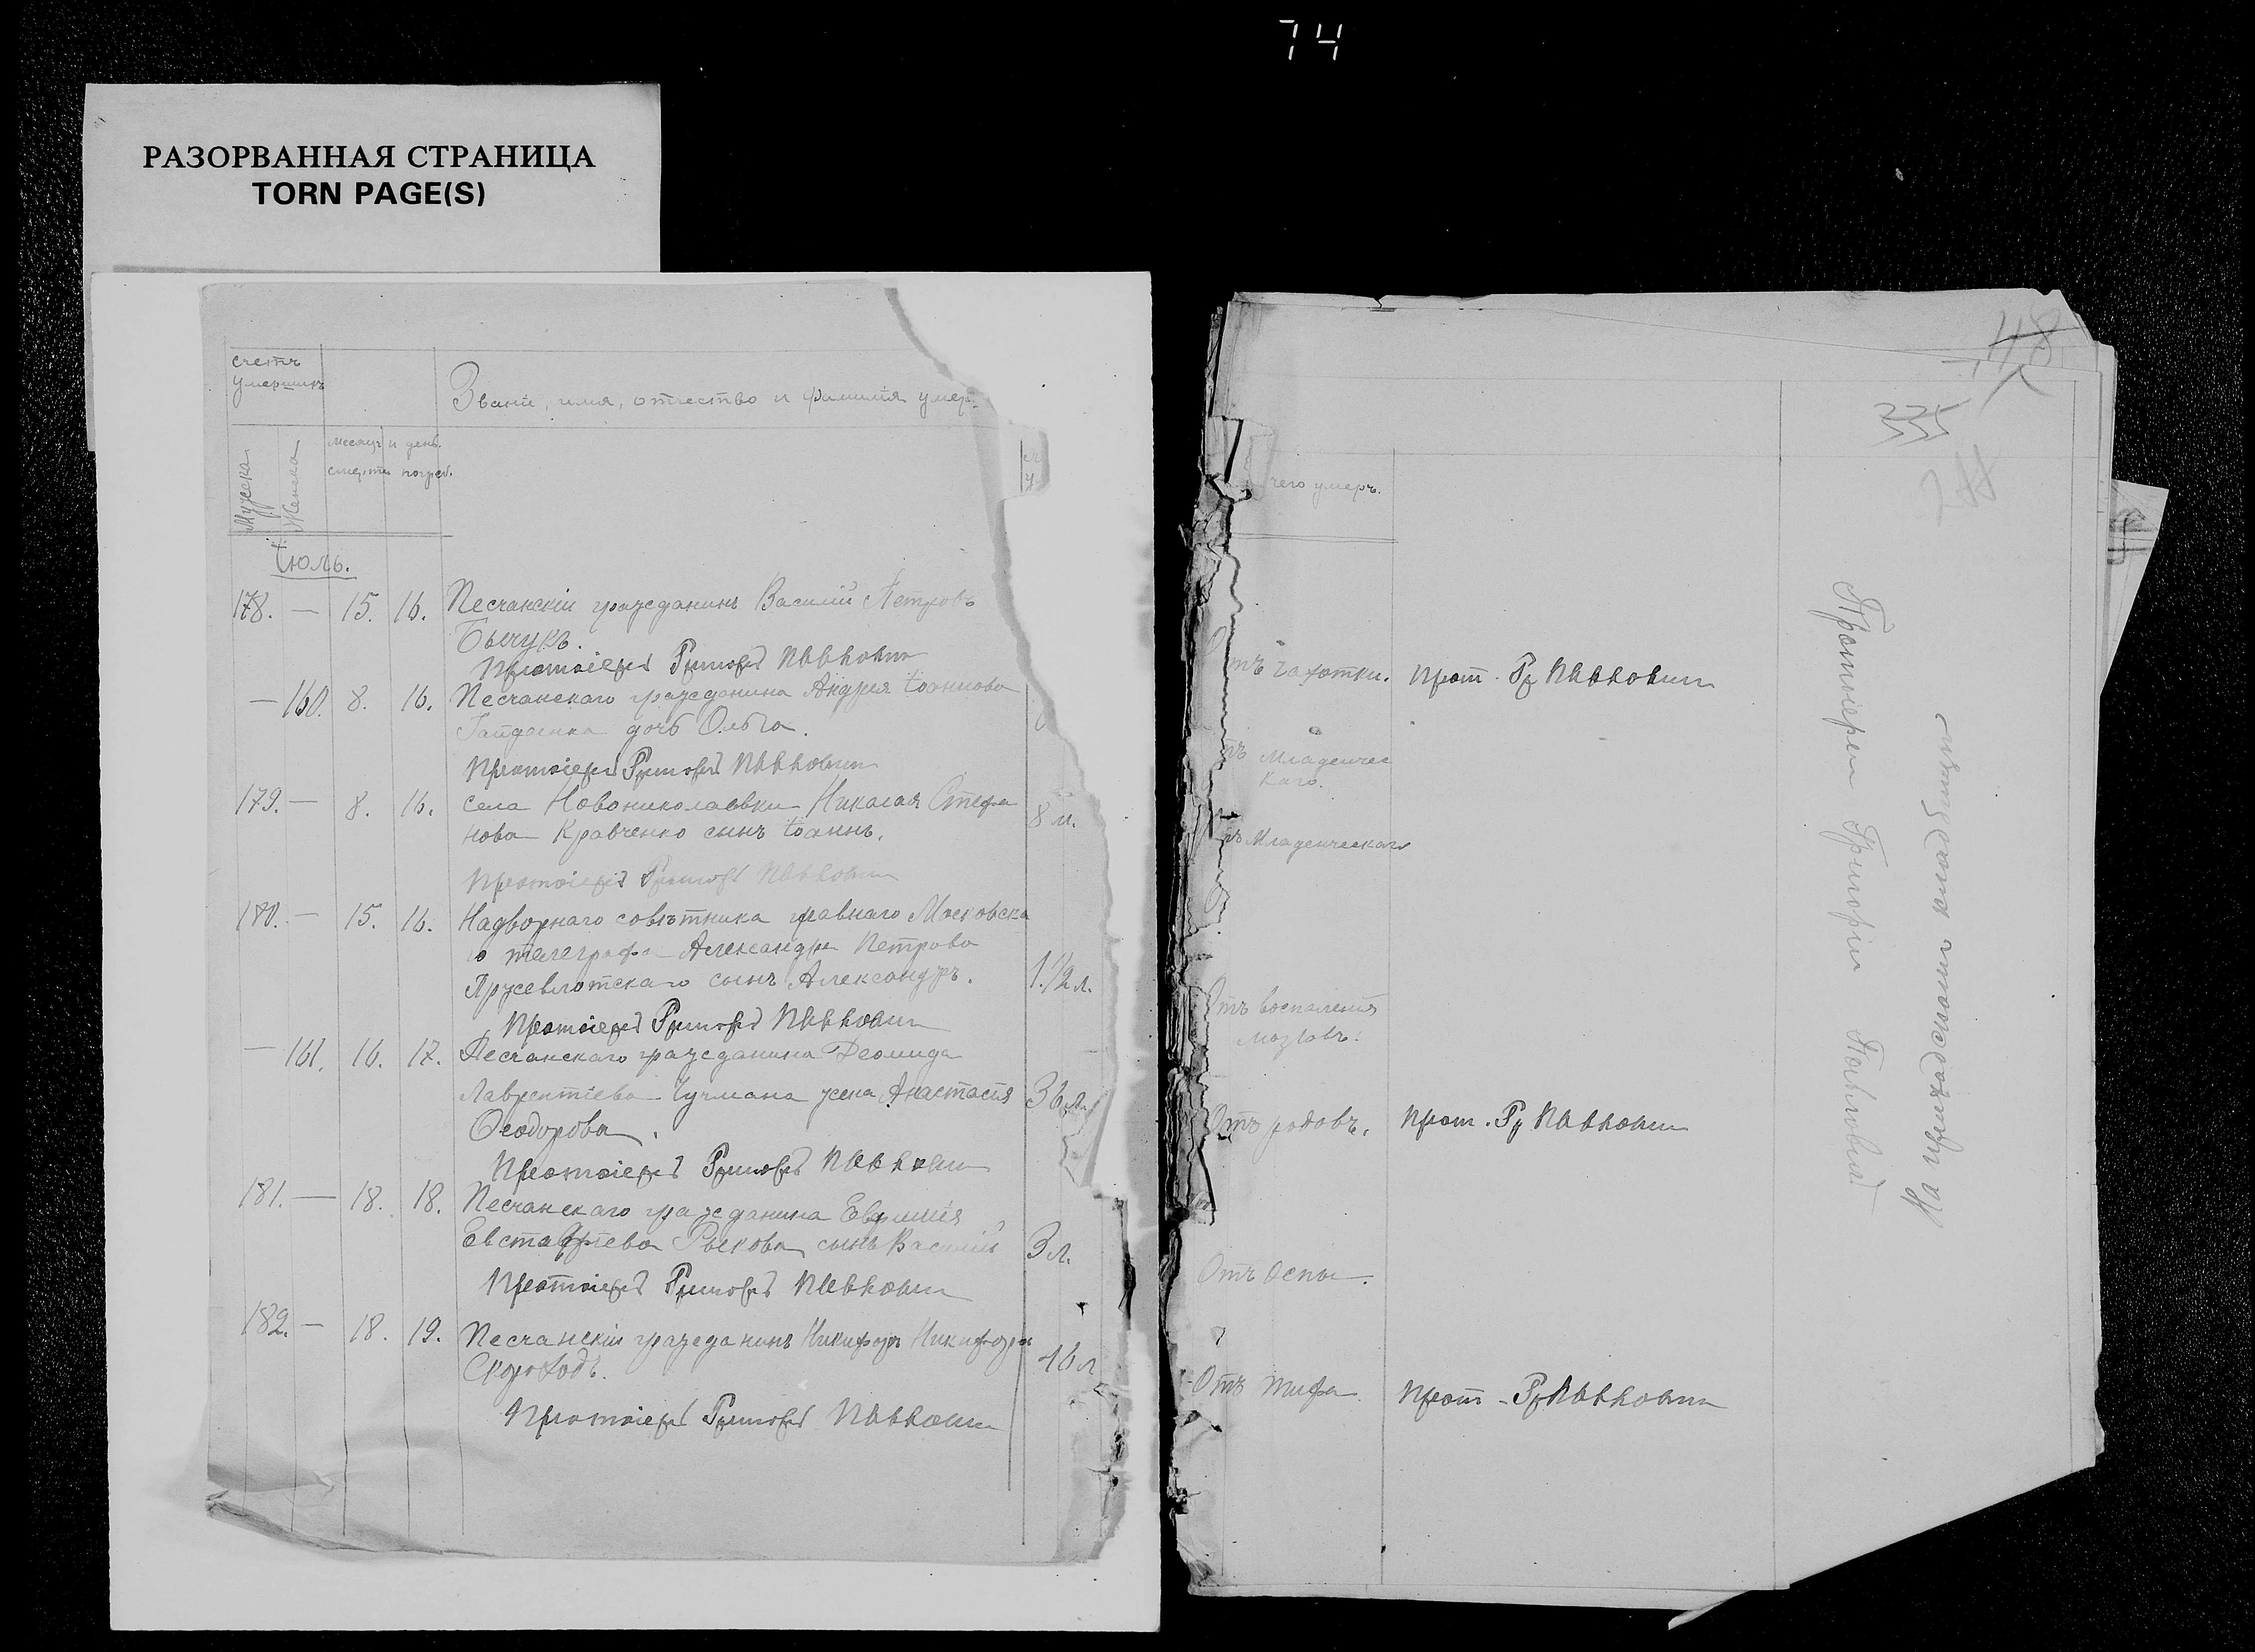 74
РАЗОРВАННАЯ СТРАНИЦА
TORN PAGE(S)
счетъ
умершихъ
Звание, имя, отчество и фамилія умер.
Мужеска
Женска
месяцъ и день
смерти погреб.
Іюль.
178. — 15. 16. Песчанскій гражданинъ Василій Петровъ
Бычукъ.
Протоіерей Григорій
— 160. 8. 16. Песчанскаго гражданина Андрея Іоаннова
дочь Ольга.
Протоіерей Григорій
179. — 8. 16. села Новониколаевки Николая Стефа
нова Кравченко сынъ Іоаннъ. 8 м.
Протоіерей Григорій
180. — 15. 16. Надворнаго совѣтника главнаго Московска
го телеграфа Александра Петрова
сынъ Александръ. 1 1/2 л.
Протоіерей Григорій
— 161. 16. 17. Песчанскаго гражданина Деомида
Лаврентіева Чучмана жена Анастасія 36 л.
Ѳеодорова.
Протоіерей Григорій
181. — 18. 18. Песчанскаго гражданина Евфимія
Евстафіева Рыкова сынъ Василій 3 л.
Протоіерей Григорій
182. — 18. 19. Песчанскій гражданинъ Никифоръ Никифоровъ
Скороходъ. 46 л
Протоіерей Григорій
48
335
74
чего умеръ.
Отъ чахотки. Прот. Гр
тъ Младенчес
каго.
тъ Младенческаго
Отъ воспаления
мозговъ.
Отъ родовъ. Прот. Гр
Отъ Оспы.
Отъ тифа. Прот. Гр
Протоіерей Григорій
На приходскомъ кладбищѣ